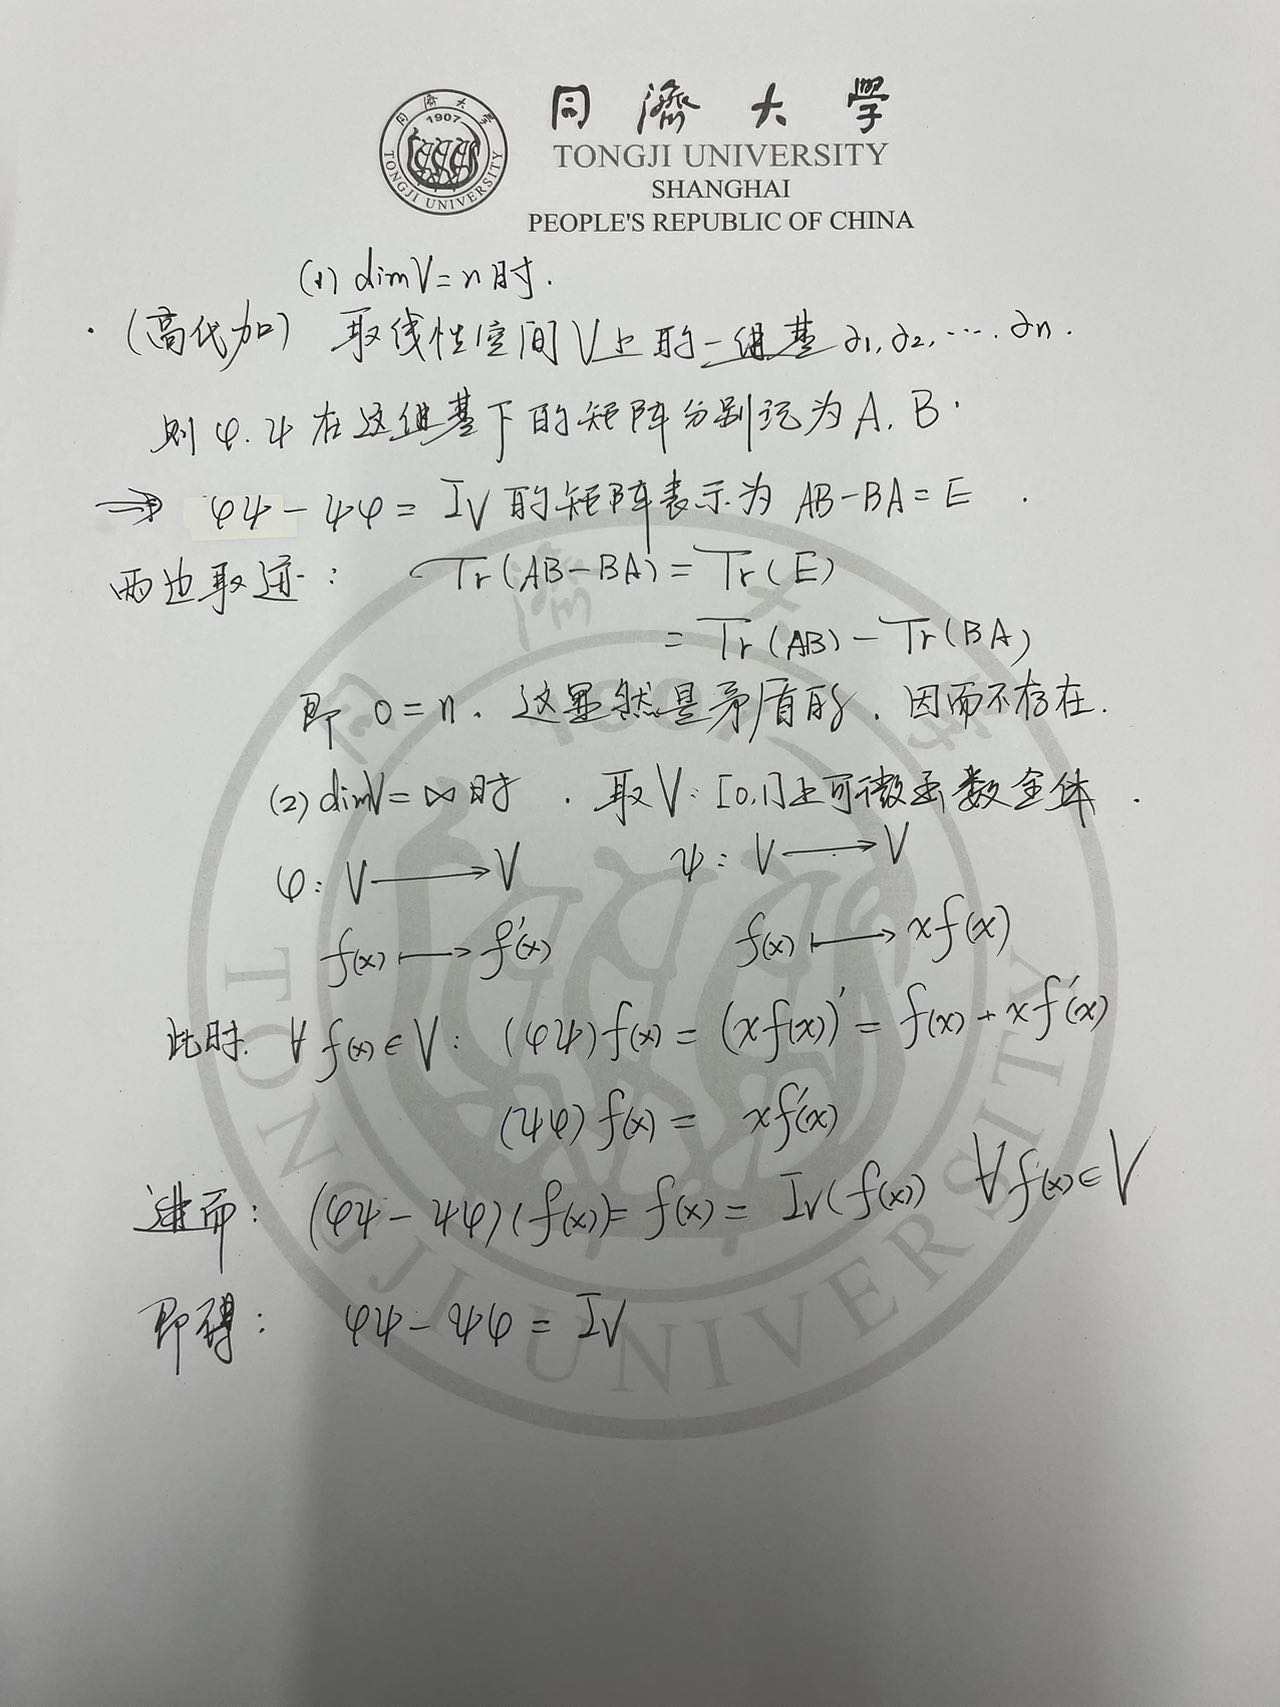 同濟大學
1907
TONGJI UNIVERSITY
TONGJI UNIVERSITY
SHANGHAI
PEOPLE'S REPUBLIC OF CHINA
(1) dimV=n时.
·(高代加) 取线性空间V上的一组基 α1, α2, …. αn.
则φ.ψ在这组基下的矩阵分别记为A, B.
⇒ φψ-ψφ = IV 的矩阵表示为 AB-BA=E.
两边取迹: Tr(AB-BA) = Tr(E)
= Tr(AB) - Tr(BA)
即 0=n. 这显然是矛盾的. 因而不存在.
(2) dimV=∞时. 取V: [0,1]上可微函数全体.
φ: V → V ψ: V → V
f(x) ↦ f'(x) f(x) ↦ xf(x)
此时. ∀f(x)∈V: (φψ)f(x) = (xf(x))' = f(x) + xf'(x)
(ψφ)f(x) = xf'(x)
进而: (φψ-ψφ)(f(x)) = f(x) = IV(f(x)) ∀f(x)∈V
即得: φψ-ψφ = IV
同濟大學
1907
TONGJI UNIVERSITY